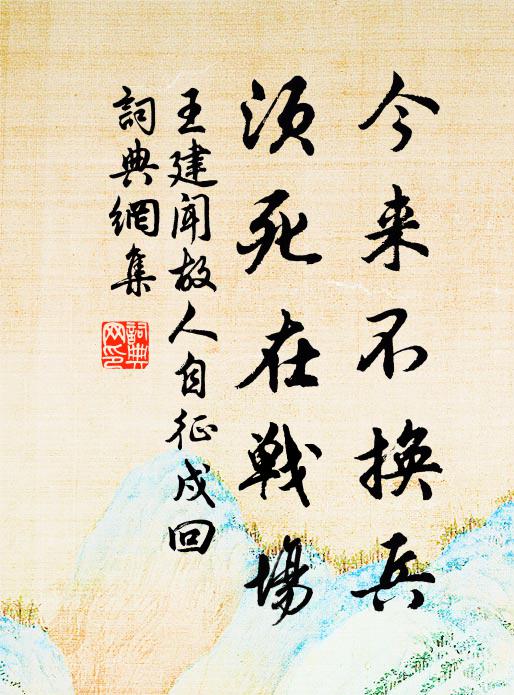 今来不换兵
须死在戰場
王建闻故人自征戍回
詞典網集
詞典网印